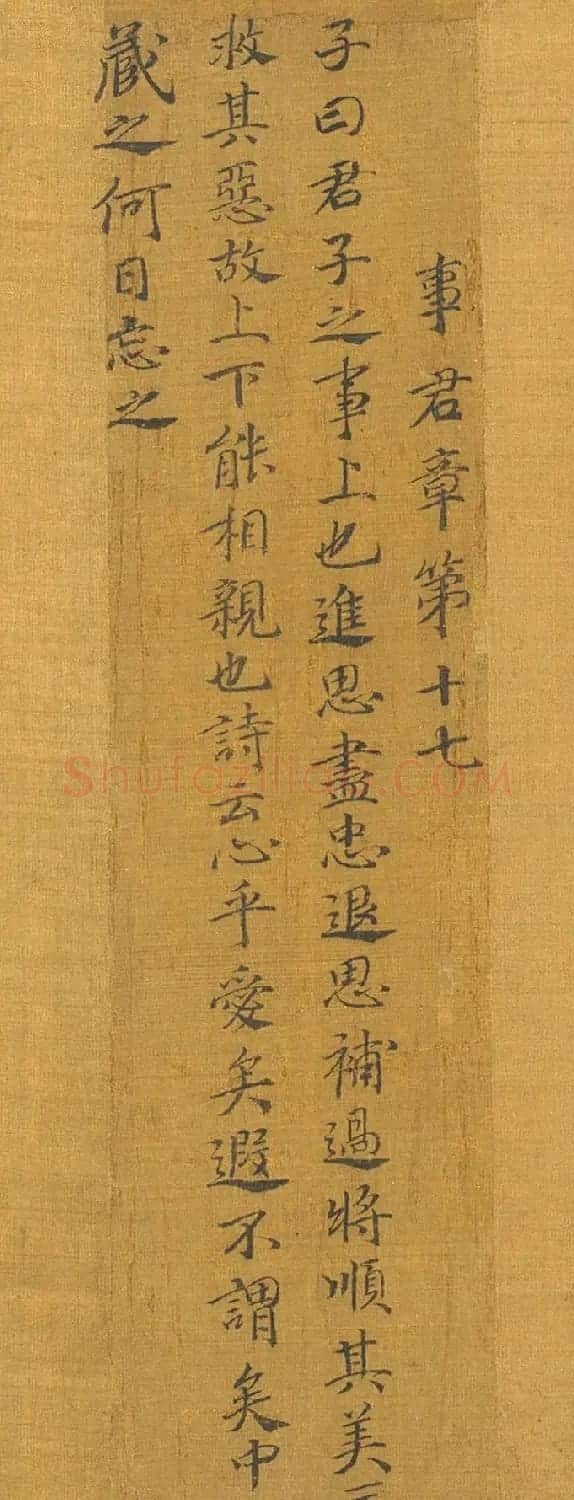 事君章第十七
子曰君子之事上也進思盡忠退思補過將順其美
救其惡故上下能相親也詩云心乎愛矣遐不謂矣中
藏之何日忘之